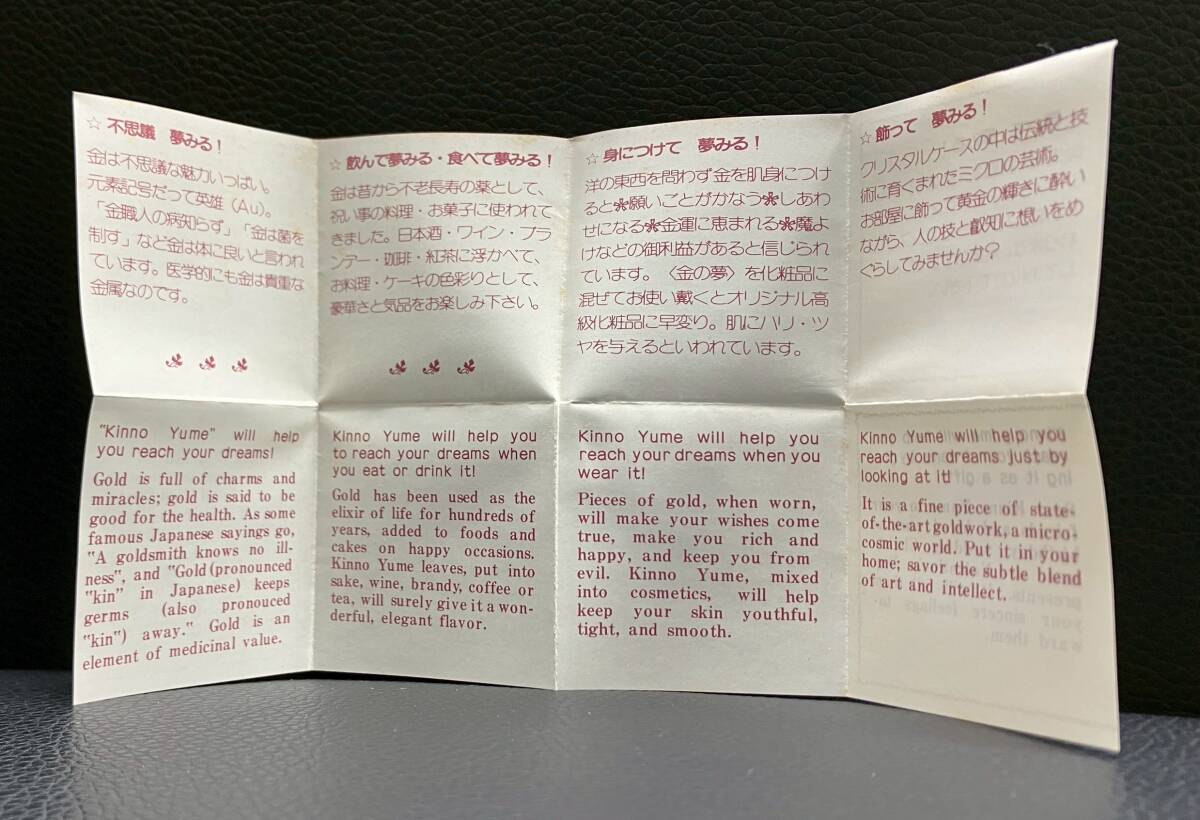 ☆ 不思議 夢みる！
金は不思議な魅力いっぱい。
元素記号だって英雄（Au）。
「金職人の病知らず」「金は菌を
制す」など金は体に良いと言われ
ています。医学的にも金は貴重な
金属なのです。
☆ 飲んで夢みる・食べて夢みる！
金は昔から不老長寿の薬として、
祝い事の料理・お菓子に使われて
きました。日本酒・ワイン・ブラ
ンデー・珈琲・紅茶に浮かべて、
お料理・ケーキの色彩りとして、
豪華さと気品をお楽しみ下さい。
☆ 身につけて 夢みる！
洋の東西を問わず金を肌身につけ
ると❀願いごとがかなう❀しあわ
せになる❀金運に恵まれる❀魔よ
けなどの御利益があると信じられ
ています。〈金の夢〉を化粧品に
混ぜてお使い戴くとオリジナル高
級化粧品に早変り。肌にハリ・ツ
ヤを与えるといわれています。
☆ 飾って 夢みる！
クリスタルケースの中は伝統と技
術に育くまれたミクロの芸術。
お部屋に飾って黄金の輝きに酔い
ながら、人の技と叡知に想いをめ
ぐらしてみませんか？
"Kinno Yume" will help
you reach your dreams!
Gold is full of charms and
miracles; gold is said to be
good for the health. As some
famous Japanese sayings go,
"A goldsmith knows no ill-
ness", and "Gold (pronounced
"kin" in Japanese) keeps
germs (also pronouced
"kin") away." Gold is an
element of medicinal value.
Kinno Yume will help you
to reach your dreams when
you eat or drink it!
Gold has been used as the
elixir of life for hundreds of
years, added to foods and
cakes on happy occasions.
Kinno Yume leaves, put into
sake, wine, brandy, coffee or
tea, will surely give it a won-
derful, elegant flavor.
Kinno Yume will help you
reach your dreams when you
wear it!
Pieces of gold, when worn,
will make your wishes come
true, make you rich and
happy, and keep you from
evil. Kinno Yume, mixed
into cosmetics, will help
keep your skin youthful,
tight, and smooth.
Kinno Yume will help you
reach your dreams just by
looking at it!
It is a fine piece of state-
of-the-art goldwork, a micro-
cosmic world. Put it in your
home; savor the subtle blend
of art and intellect.